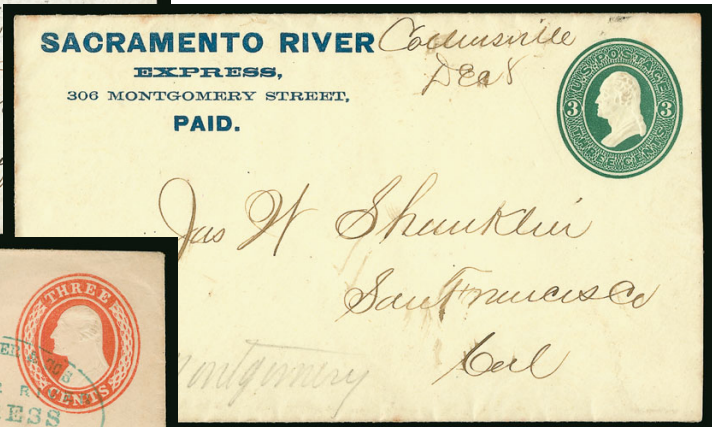 SACRAMENTO RIVER
EXPRESS,
306 MONTGOMERY STREET,
PAID.
Collinsville
Dec 8
U.S. POSTAGE
3 3
THREE CENTS
Jas W Shanklin
San Francisco
Cal
Montgomery
THREE
CENTS
ESS